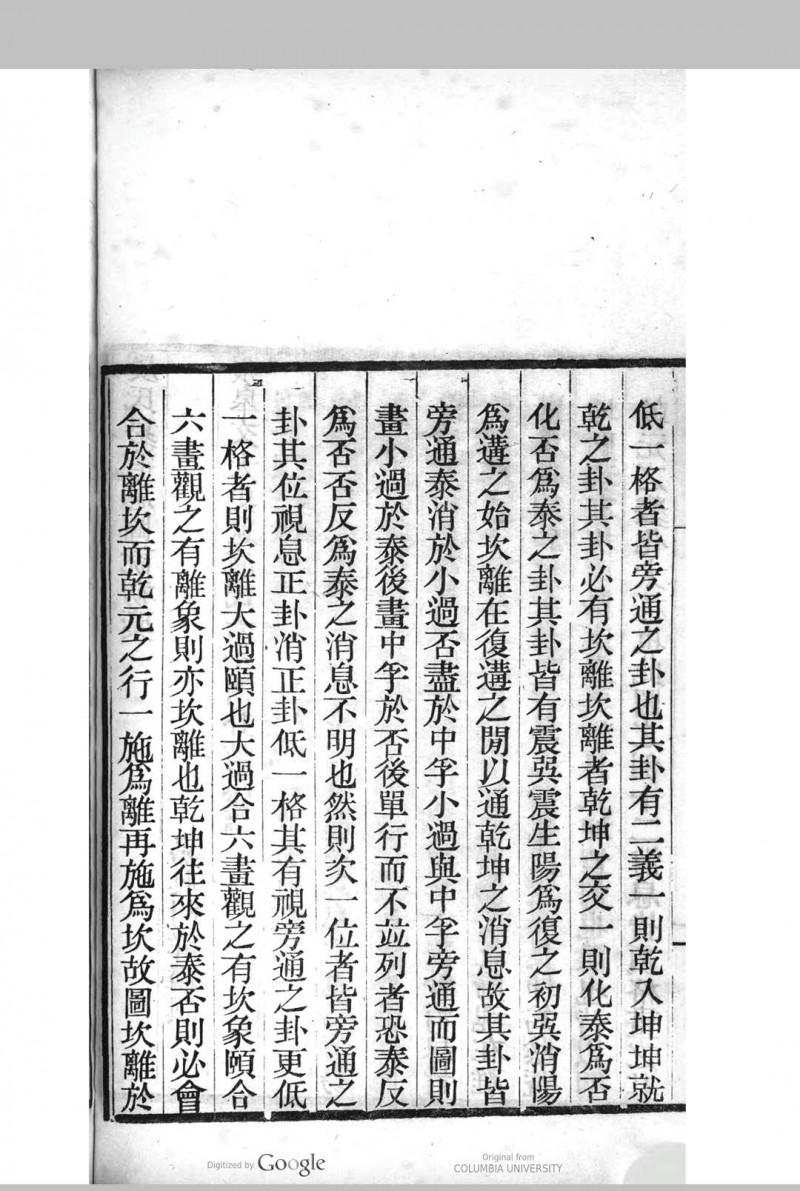 低一格者皆旁通之卦也其卦有二義一則乾入坤坤就
乾之卦其卦必有坎離坎離者乾坤之交一則化泰爲否
化否爲泰之卦其卦皆有震巽震生陽爲復之初巽消陽
爲遘之始坎離在復遘之閒以通乾坤之消息故其卦皆
旁通泰消於小過否盡於中孚小過與中孚旁通而圖則
畫小過於泰後畫中孚於否後單行而不竝列者恐泰反
爲否否反爲泰之消息不明也然則次一位者皆旁通之
卦其位視息正卦消正卦低一格其有視旁通之卦更低
一格者則坎離大過頤也大過合六畫觀之有坎象頤合
六畫觀之有離象則亦坎離也乾坤往來於泰否則必會
合於離坎而乾元之行一施爲離再施爲坎故圖坎離於
Digitized by Google
Original from
COLUMBIA UNIVERSITY